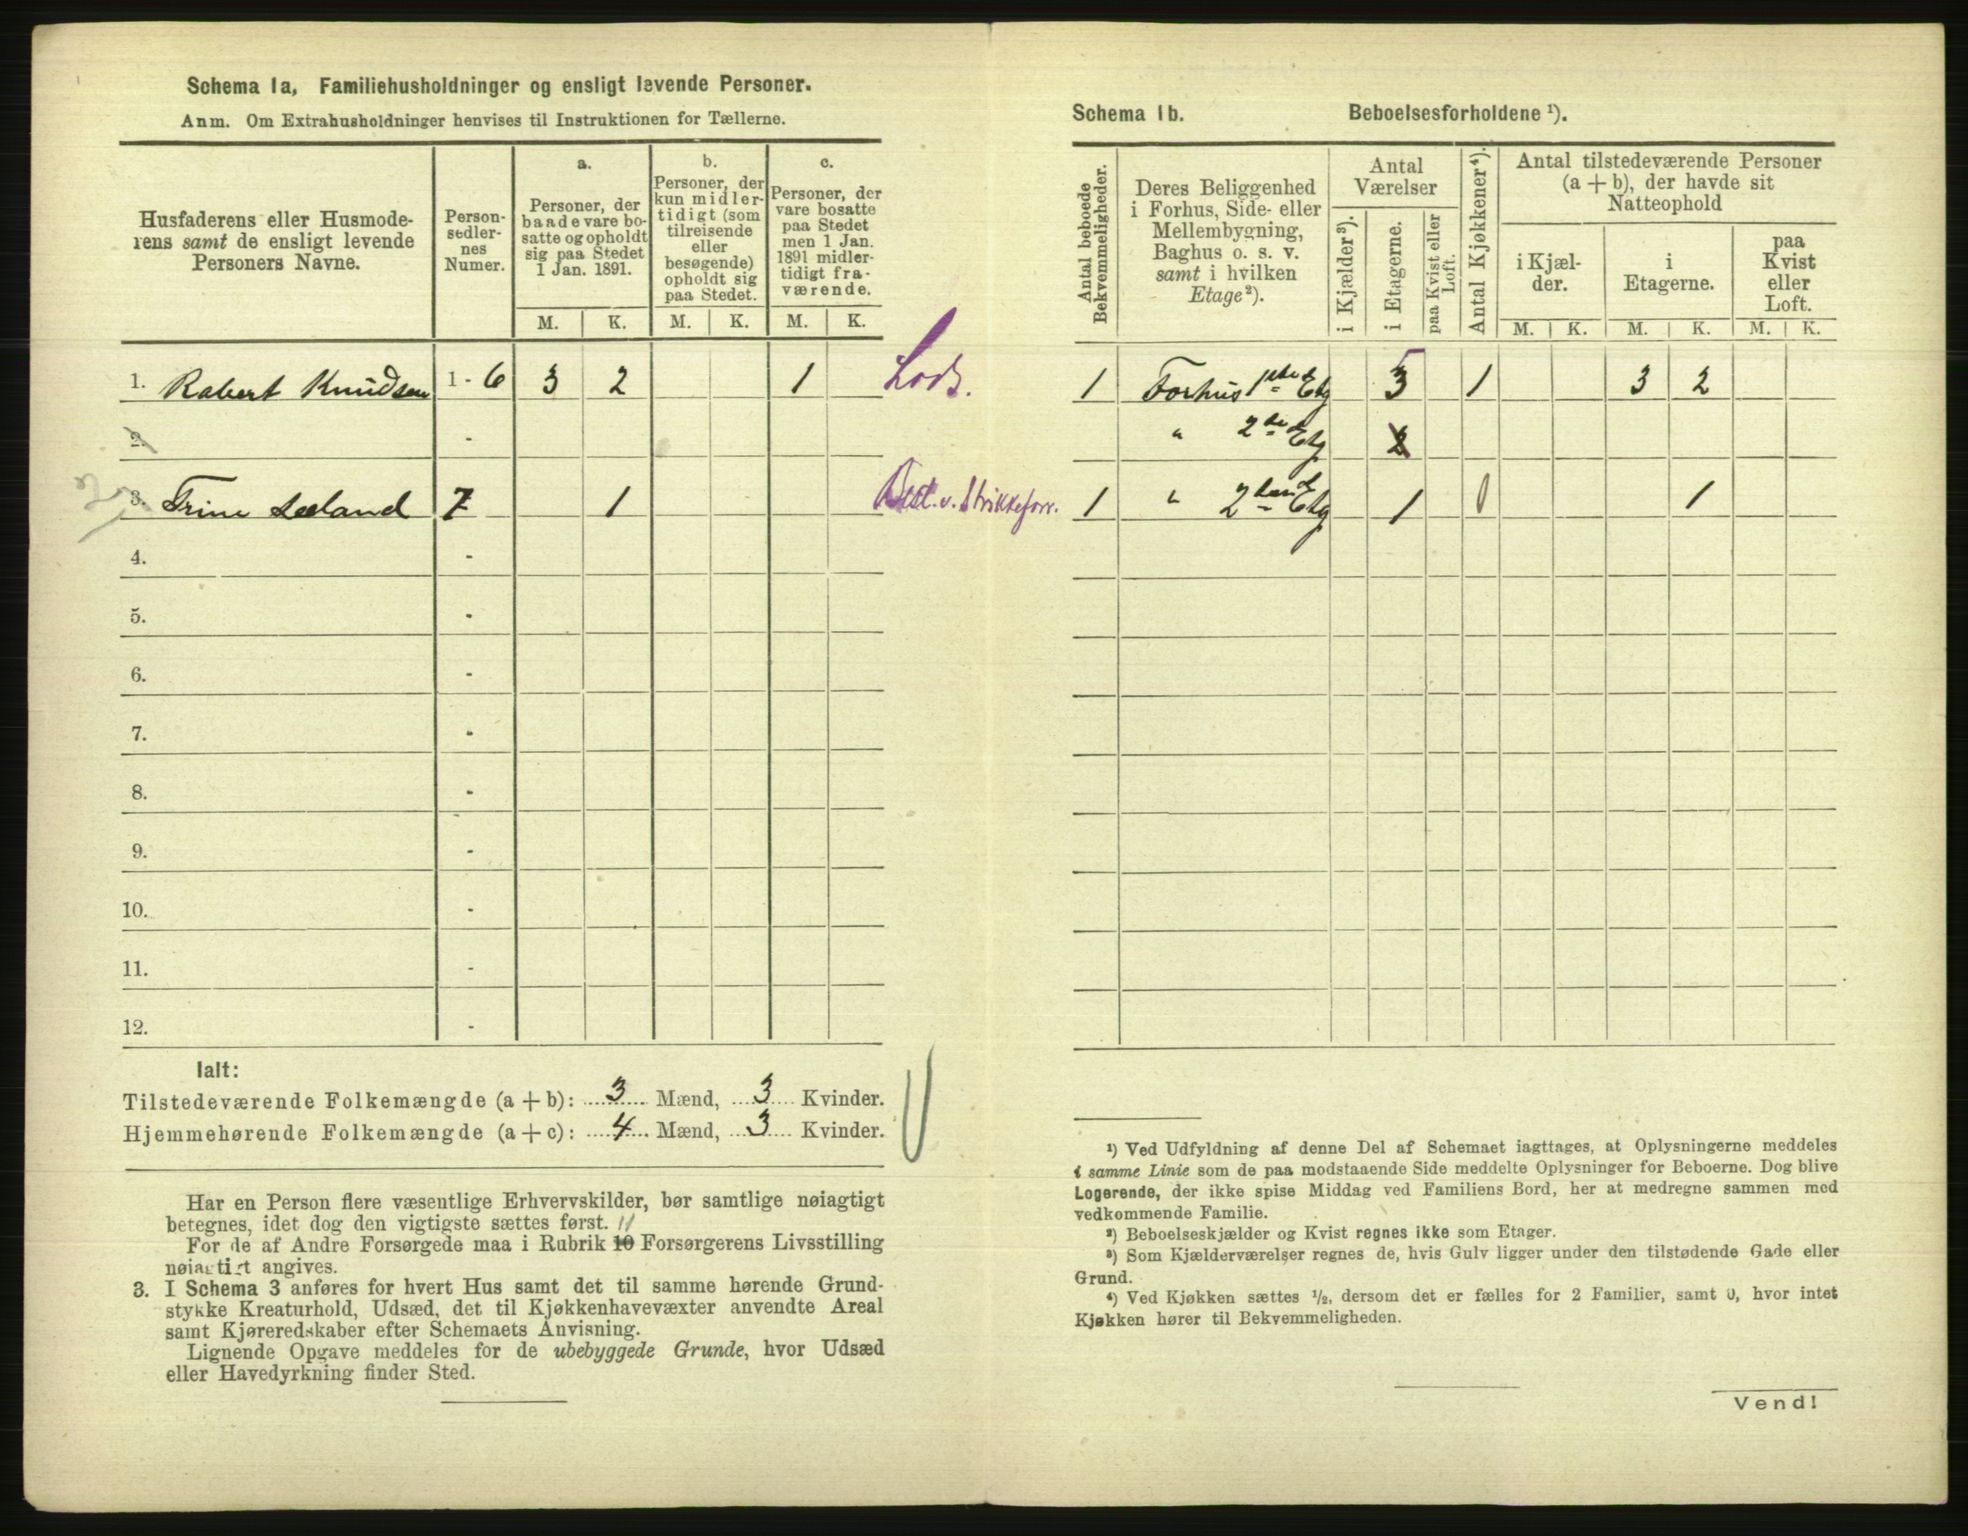 Schema 1a, Familiehusholdninger og ensligt levende Personer.
Anm. Om Extrahusholdninger henvises til Instruktionen for Tællerne.
Husfaderens eller Husmode-
rens samt de ensligt levende
Personers Navne.
Person-
sedler-
nes
Numer.
a.
Personer, der
baade vare bo-
satte og opholdt
sig paa Stedet
1 Jan. 1891.
M. K.
b.
Personer, der
kun midler-
tidigt (som
tilreisende
eller
besøgende)
opholdt sig
paa Stedet.
M. K.
c.
Personer, der
vare bosatte
paa Stedet
men 1 Jan.
1891 midler-
tidigt fra-
værende.
M. K.
1. Robert Knudsen 1 - 6 3 2 1 Lods.
2. -
3. Trine 7 1 Best. v. Strikkeforr.
4. -
5. -
6. -
7. -
8. -
9. -
10. -
11. -
12. -
Ialt:
Tilstedeværende Folkemængde (a + b): 3 Mænd, 3 Kvinder.
Hjemmehørende Folkemængde (a + c): 4 Mænd, 3 Kvinder.
Har en Person flere væsentlige Erhvervskilder, bør samtlige nøiagtigt
betegnes, idet dog den vigtigste sættes først. 11
For de af Andre Forsørgede maa i Rubrik 10 Forsørgerens Livsstilling
nøiagtigt angives.
3. I Schema 3 anføres for hvert Hus samt det til samme hørende Grund-
stykke Kreaturhold, Udsæd, det til Kjøkkenhavevæxter anvendte Areal
samt Kjøreredskaber efter Schemaets Anvisning.
Lignende Opgave meddeles for de ubebyggede Grunde, hvor Udsæd
eller Havedyrkning finder Sted.
Schema 1b. Beboelsesforholdene ¹).
Antal beboede
Bekvemmeligheder.
Deres Beliggenhed
i Forhus, Side- eller
Mellembygning,
Baghus o. s. v.
samt i hvilken
Etage²).
Antal
Værelser
i Kjælder³).
i Etagerne.
paa Kvist eller
Loft.
Antal Kjøkkener⁴).
Antal tilstedeværende Personer
(a + b), der havde sit
Natteophold
i Kjæl-
der.
i
Etagerne.
paa
Kvist
eller
Loft.
M. K. M. K. M. K.
1 Forhus 1ste Etg 5 3 1 3 2
" 2de Etg 2
1 " 2den Etg 1 0 1
¹) Ved Udfyldning af denne Del af Schemaet iagttages, at Oplysningerne meddeles
i samme Linie som de paa modstaaende Side meddelte Oplysninger for Beboerne. Dog blive
Logerende, der ikke spise Middag ved Familiens Bord, her at medregne sammen med
vedkommende Familie.
²) Beboelseskjælder og Kvist regnes ikke som Etager.
³) Som Kjælderværelser regnes de, hvis Gulv ligger under den tilstødende Gade eller
Grund.
⁴) Ved Kjøkken sættes ½, dersom det er fælles for 2 Familier, samt 0, hvor intet
Kjøkken hører til Bekvemmeligheden.
Vend!